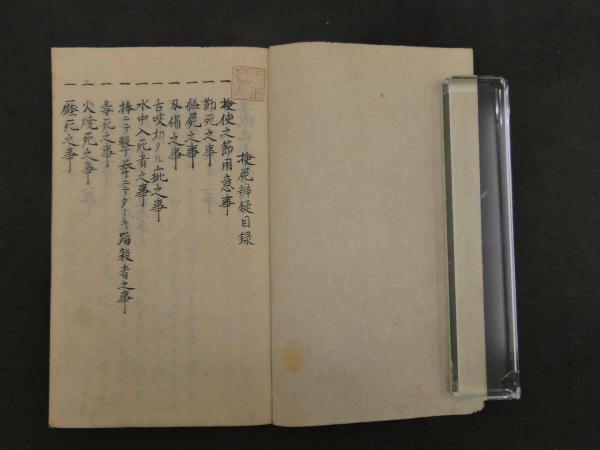 検屍辨疑目録
一 検使之節用意事
一 勒死之事
一 縊屍之事
一 刄傷之事
一 舌咬切タル疵之事
一 水中入死者之事
一 棒ニテ撃手ニテタヽキ蹈殺者之事
一 毒死之事
一 火燒死之事
一 壓死之事